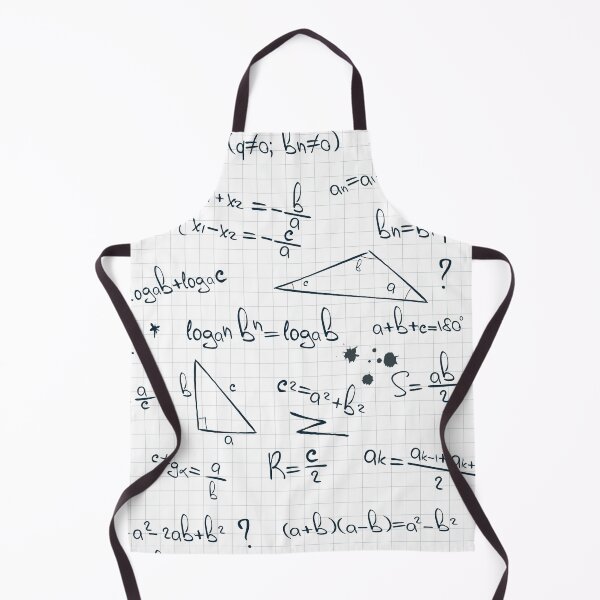 (q≠0; bn≠0)
an=a1
+x2=-b/a
(x1-x2=-c/a
bn=b1
b
c
a
?
logab+logac
* loganbn=logab
a+b+c=180°
a/c
b
c
a
c2=a2+b2
S=ab/2
Σ
ctgα=a/b
R=c/2
ak=ak-1+ak+/2
a2-2ab+b2 ?
(a+b)(a-b)=a2-b2